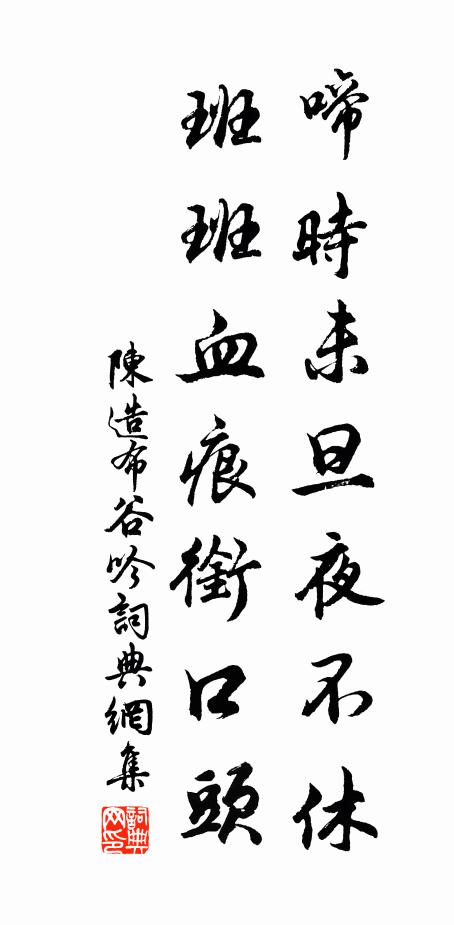 啼時未旦夜不休
班班血痕銜口頭
陳造布谷吟詞典網集
詞典
网印